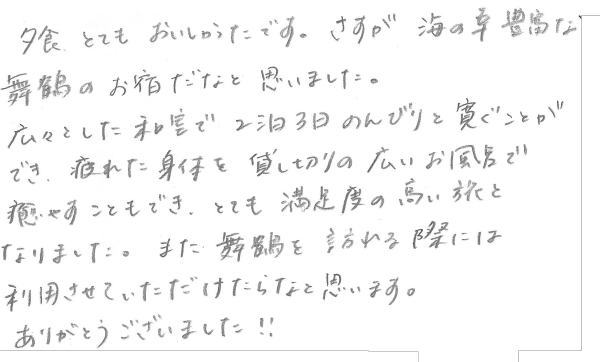 夕食、とても おいしかったです。さすが 海の幸 豊富な
舞鶴の お宿だなと 思いました。
広々とした 和室で 2泊3日 のんびりと 寛ぐことが
でき、疲れた 身体を 貸し切りの 広い お風呂で
癒やすこともでき、とても 満足度の 高い 旅と
なりました。また 舞鶴を 訪れる 際には
利用させていただけたらなと 思います。
ありがとうございました!!